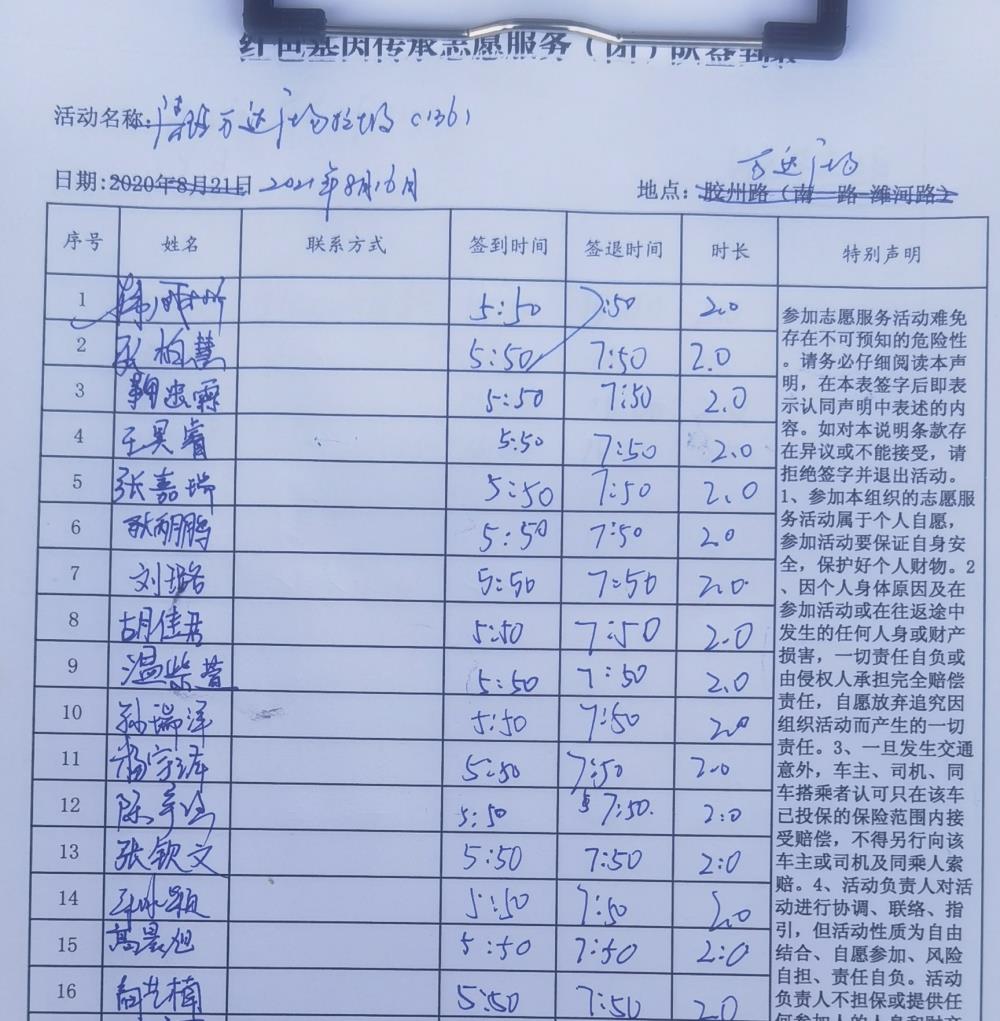 红色基因传承志愿服务（团）队签到表
活动名称: 万达广场 (136)
日期: 2020年8月21日 2021年8月16日
万达广场
地点: 胶州路（南 路-潍河路）
序号 姓名 联系方式 签到时间 签退时间 时长 特别声明
1 5:50 7:50 2.0
2 张柏慧 5:50 7:50 2.0
3 5:50 7:50 2.0
4 王昊睿 5:50 7:50 2.0
5 张嘉瑞 5:50 7:50 2.0
6 5:50 7:50 2.0
7 刘璐 5:50 7:50 2.0
8 胡佳君 5:50 7:50 2.0
9 温紫萱 5:50 7:50 2.0
10 孙瑞泽 5:50 7:50 2.0
11 杨宇泽 5:50 7:50 2.0
12 5:50 7:50. 2:0
13 张钦文 5:50 7:50 2:0
14 5:50 7:50 2.0
15 高晨旭 5:50 7:50 2:0
16 5:50 7:50 2.0
参加志愿服务活动难免
存在不可预知的危险性
。请务必仔细阅读本声
明，在本表签字后即表
示认同声明中表述的内
容。如对本说明条款存
在异议或不能接受，请
拒绝签字并退出活动。
1、参加本组织的志愿服
务活动属于个人自愿，
参加活动要保证自身安
全，保护好个人财物。2
、因个人身体原因及在
参加活动或在往返途中
发生的任何人身或财产
损害，一切责任自负或
由侵权人承担完全赔偿
责任，自愿放弃追究因
组织活动而产生的一切
责任。3、一旦发生交通
意外，车主、司机、同
车搭乘者认可只在该车
已投保的保险范围内接
受赔偿，不得另行向该
车主或司机及同乘人索
赔。4、活动负责人对活
动进行协调、联络、指
引，但活动性质为自由
结合、自愿参加、风险
自担、责任自负。活动
负责人不担保或提供任
何参加人的人身和财产